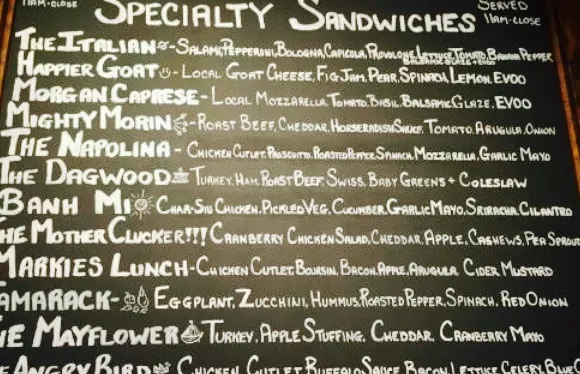 11AM-CLOSE
SPECIALTY SANDWICHES
SERVED
11AM-CLOSE
THE ITALIAN - SALAMI, PEPPERONI, BOLOGNA, CAPICOLA, PROVOLONE, LETTUCE, TOMATO, BANANA PEPPER
BALSAMIC GLAZE + EVOO
HAPPIER GOAT - LOCAL GOAT CHEESE, FIG JAM, PEAR, SPINACH, LEMON, EVOO
MORGAN CAPRESE - LOCAL MOZZARELLA, TOMATO, BASIL, BALSAMIC GLAZE, EVOO
MIGHTY MORIN - ROAST BEEF, CHEDDAR, HORSERADISH SAUCE, TOMATO, ARUGULA, ONION
THE NAPOLINA - CHICKEN CUTLET, PROSCIUTTO, ROASTED PEPPER, SPINACH, MOZZARELLA, GARLIC MAYO
THE DAGWOOD TURKEY, HAM, ROAST BEEF, SWISS, BABY GREENS + COLESLAW
BANH MI CHAR-SIU CHICKEN, PICKLED VEG, CUCUMBER, GARLIC MAYO, SRIRACHA, CILANTRO
HE MOTHER CLUCKER!!! CRANBERRY CHICKEN SALAD, CHEDDAR, APPLE, CASHEWS, PEA SPROUT
MARKIES LUNCH - CHICKEN CUTLET, BOURSIN, BACON, APPLE, ARUGULA, CIDER MUSTARD
AMARACK - EGGPLANT, ZUCCHINI, HUMMUS, ROASTED PEPPER, SPINACH, RED ONION
HE MAYFLOWER TURKEY, APPLE STUFFING, CHEDDAR, CRANBERRY MAYO
HE ANGRY BIRD CHICKEN CUTLET, BUFFALO SAUCE, BACON, LETTUCE, CELERY, BLUE C